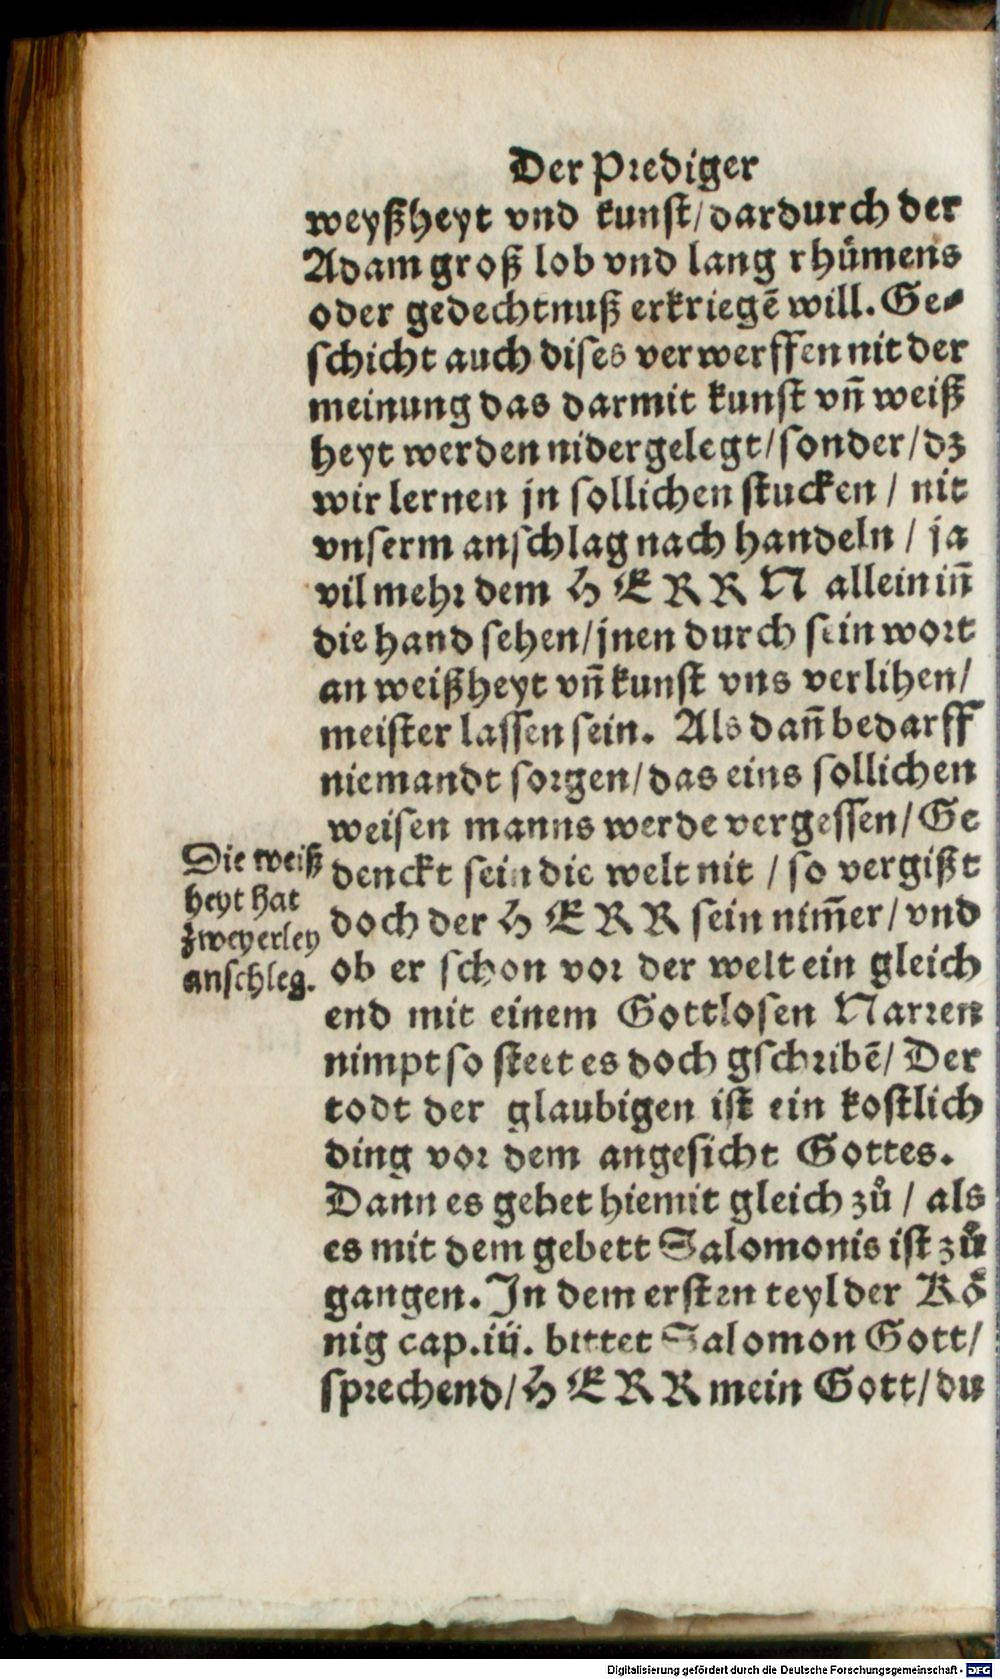 Der Prediger
weyßheyt vnd kunst/dardurch der
Adam groß lob vnd lang rhuͤmens
oder gedechtnuß erkriegẽ will. Ge⸗
schicht auch dises verwerffen nit der
meinung das darmit kunst vñ weiß
heyt werden nidergelegt/sonder/dz
wir lernen jn sollichen stucken / nit
vnserm anschlag nach handeln / ja
vil mehr dem HERRN allein iñ
die hand sehen/jnen durch sein wort
an weißheyt vñ kunst vns verlihen/
meister lassen sein. Als dañ bedarff
niemandt sorgen/das eins sollichen
weisen manns werde vergessen/Ge
denckt sein die welt nit / so vergißt
doch der HERR sein nim̃er/vnd
ob er schon vor der welt ein gleich
end mit einem Gottlosen Narren
nimpt so steet es doch gschribẽ/Der
todt der glaubigen ist ein kostlich
ding vor dem angesicht Gottes.
Dann es gehet hiemit gleich zuͦ / als
es mit dem gebett Salomonis ist zuͦ
gangen. In dem ersten teyl der Koͤ
nig cap.iij. bittet Salomon Gott/
sprechend/HERR mein Gott/du
Die weiß
heyt hat
zweyerley
anschleg.
Digitalisierung gefördert durch die Deutsche Forschungsgemeinschaft - DFG